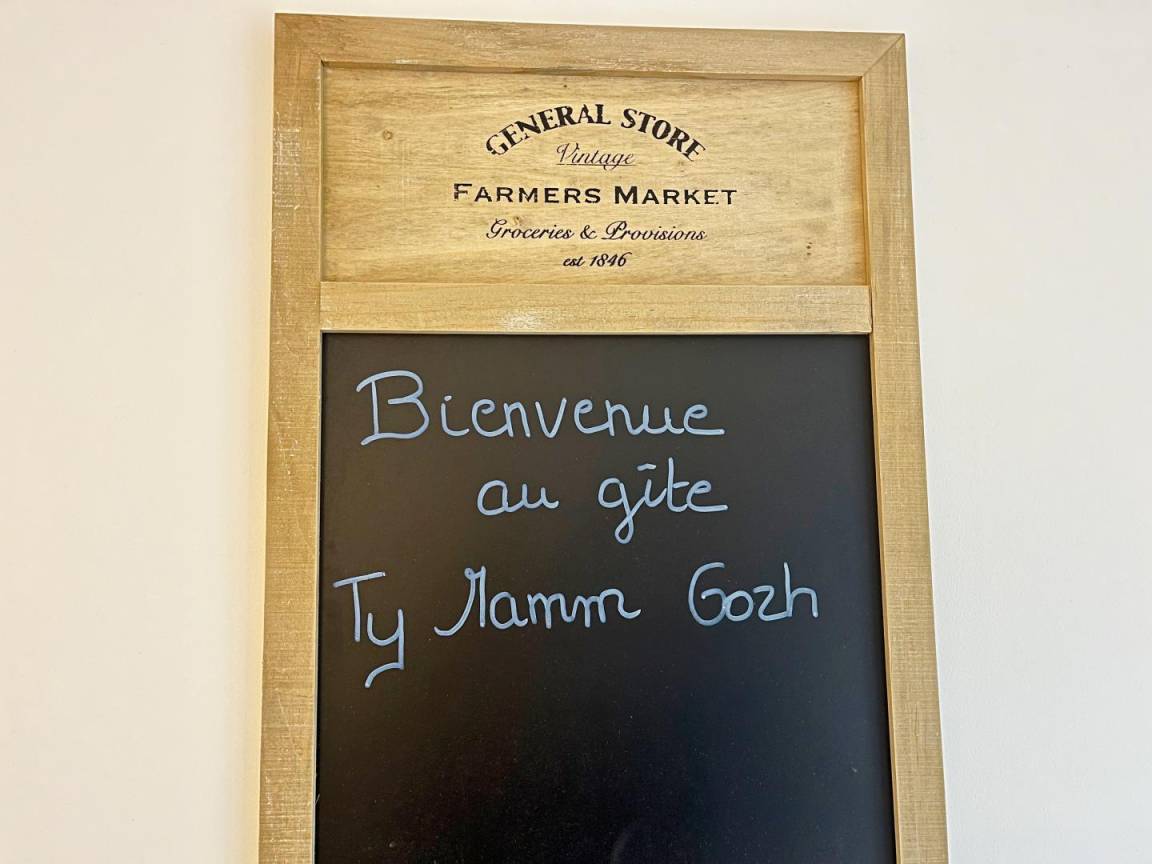 GENERAL STORE
Vintage
FARMERS MARKET
Groceries & Provisions
est 1846
Bienvenue
au gîte
Ty Mamm Gozh